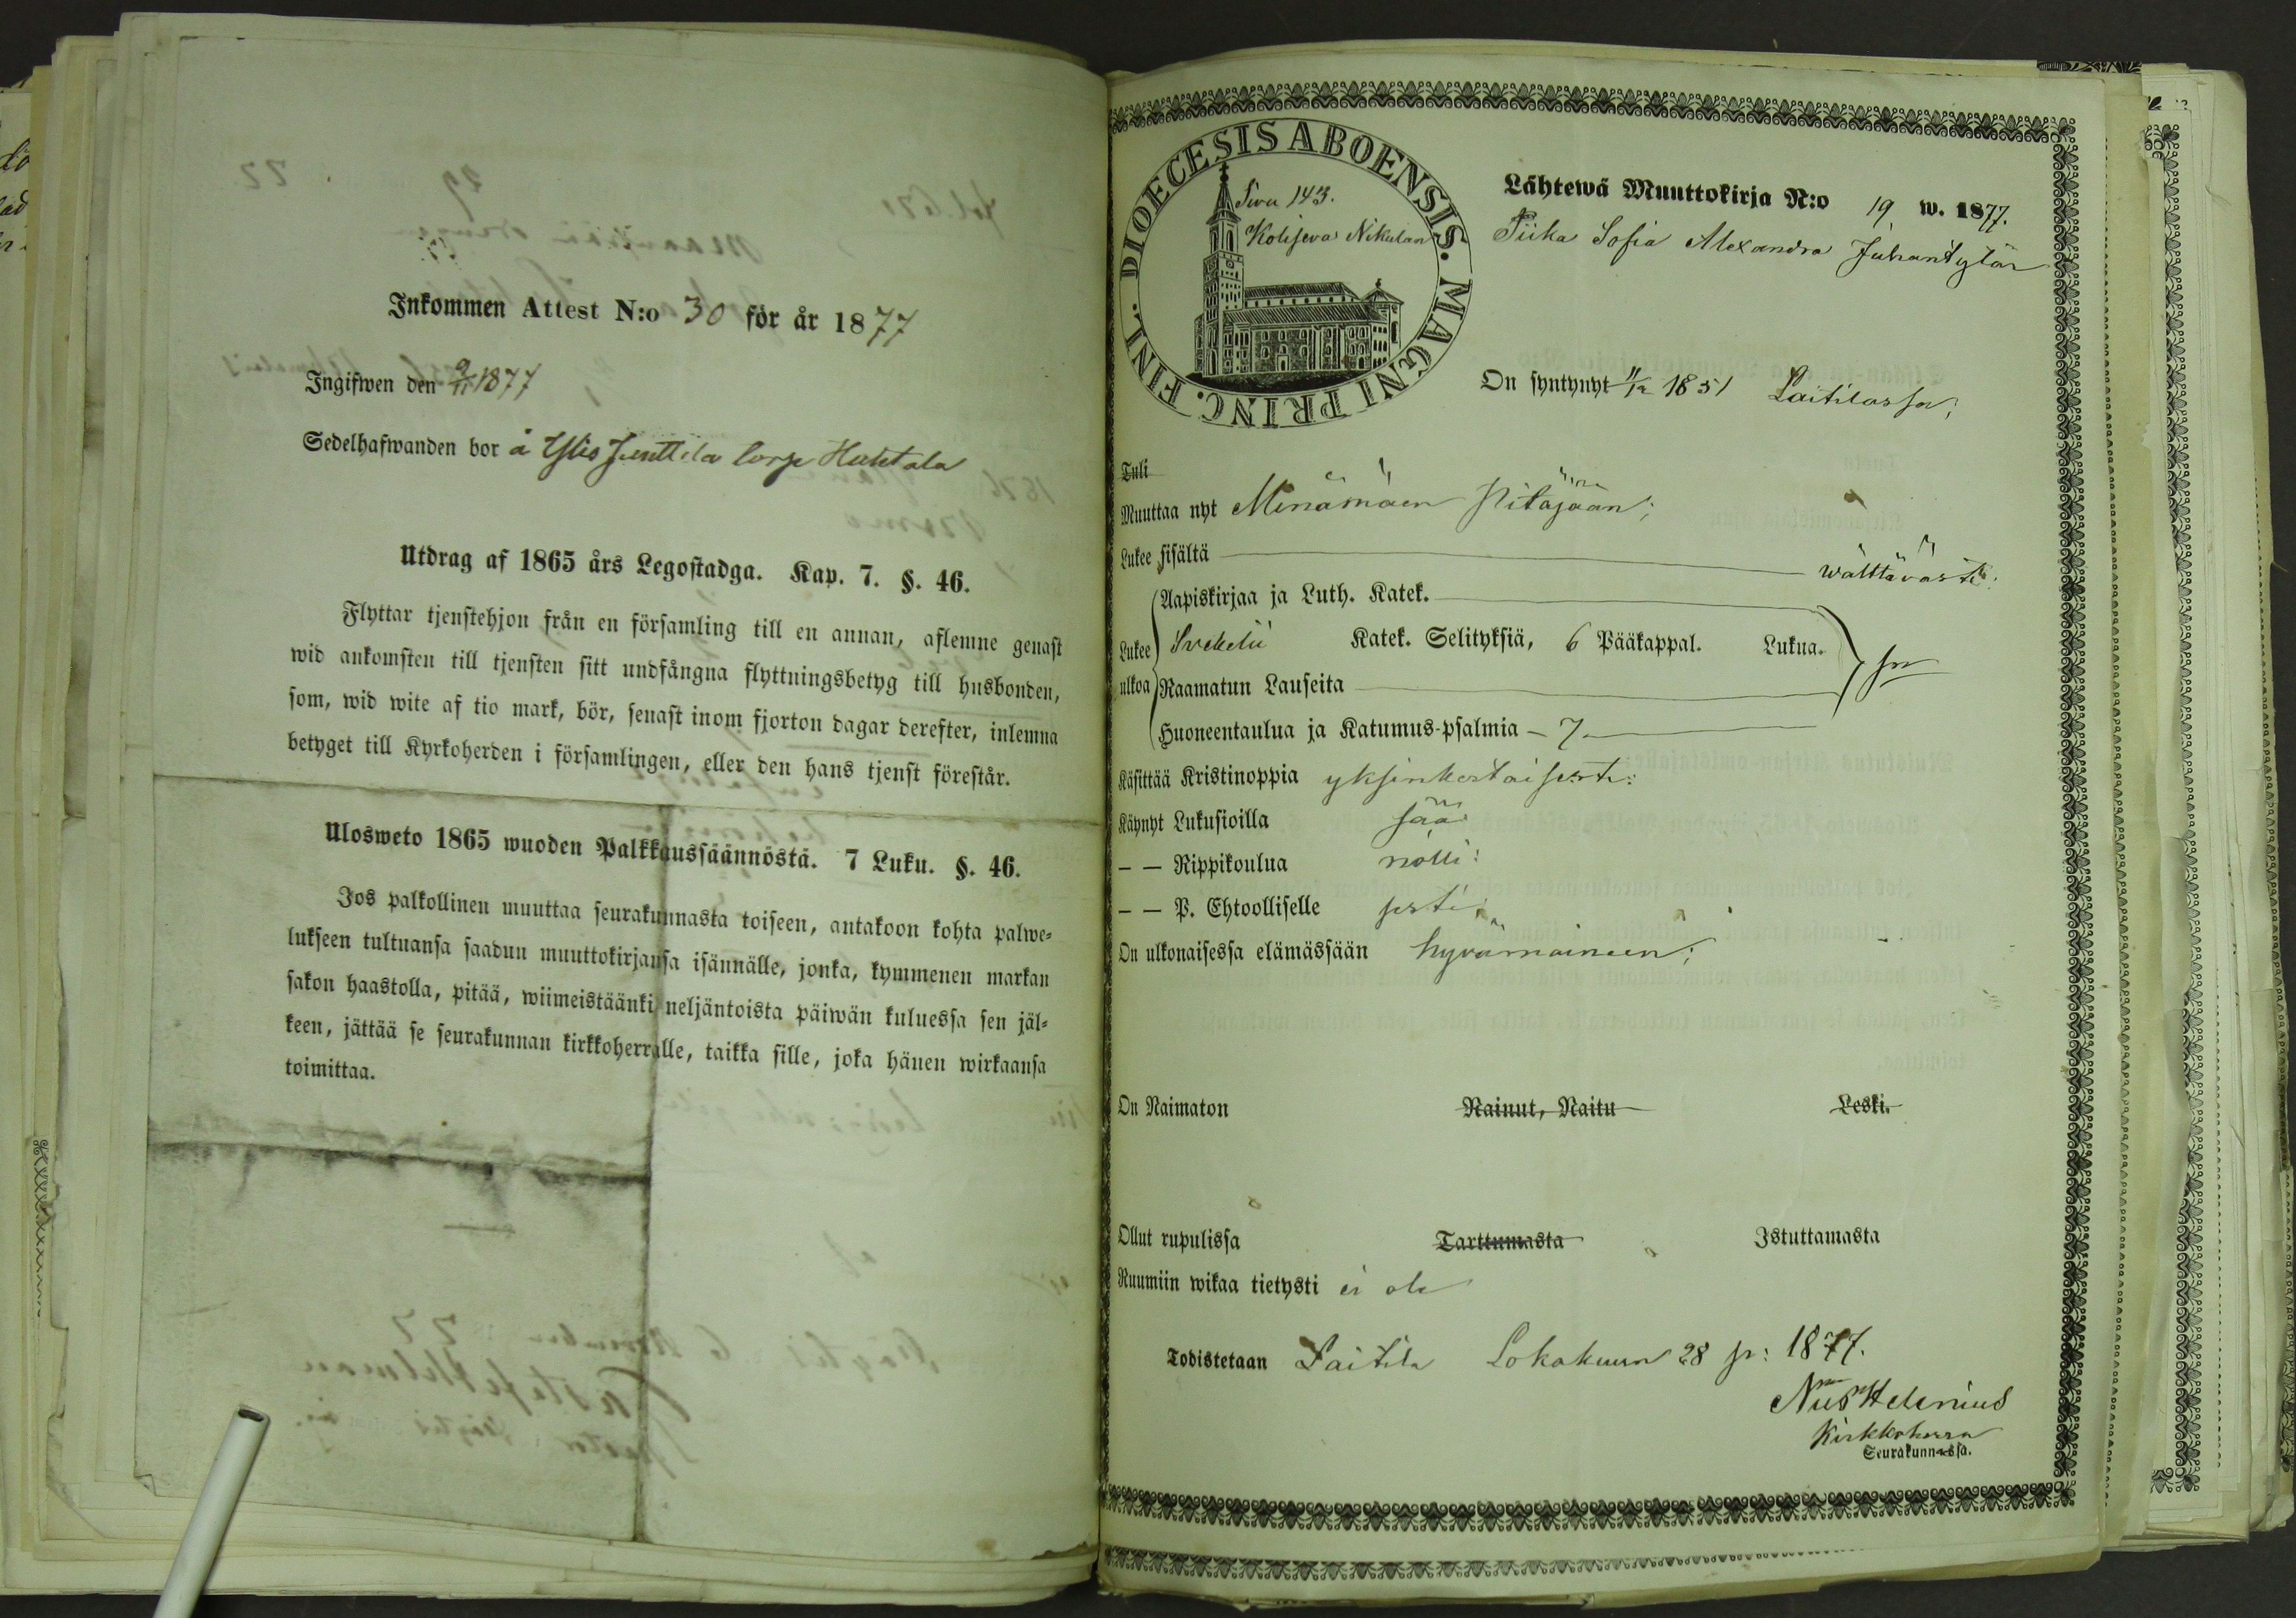 Inkommen Attest N:o 30 för år 1877
Ingifwen den 9/11 1877
Sedelhafwanden bor å Ylis Junttila torp Huhtala
Utdrag af 1865 års Legostadga. Kap. 7. §. 46.
Flyttar tjenstehjon från en församling till en annan, aflemne genast
wid ankomsten till tjensten sitt undfångna flyttningsbetyg till husbonden,
som, wid wite af tio mark, bör, senast inom fjorton dagar derefter, inlemna
betyget till Kyrkoherden i församlingen, eller den hans tjenst förestår.
Ulosweto 1865 wuoden Palkkaussäännöstä. 7 Luku. §. 46.
Jos palkollinen muuttaa seurakunnasta toiseen, antakoon kohta palwe=
lukseen tultuansa saadun muuttokirjansa isännälle, jonka, kymmenen markan
sakon haastolla, pitää, wiimeistäänki neljäntoista päiwän kuluessa sen jäl=
keen, jättää se seurakunnan kirkkoherralle, taikka sille, joka hänen wirkaansa
toimittaa.
DIOECESIS ABOENSIS. MAGNI PRINC. FINL.
Sivu 143.
Kolijeva Nikulan
Lähtewä Muuttokirja N:o 19 w. 1877.
Piika Sofia Alexandra Juhantytär
On syntynyt 11/12 1851 Laitilassa;
Tuli
Muuttaa nyt Mynämäen Pitäjään;
Lukee sisältä wälttäwästi:
Aapiskirjaa ja Luth. Katek.
Lukee ulkoa Svebelii Katek. Selityksiä, 6 Pääkappal. Lukua.
Raamatun Lauseita
Huoneentaulua ja Katumus-psalmia – 7.
Käsittää Kristinoppia yksinkertaisesti:
Käynyt Lukusioilla
– – Rippikoulua
– – P. Ehtoolliselle
On ulkonaisessa elämässään hyvämaineen;
On Naimaton Nainut, Naitu Leski.
Ollut rupulissa Tarttumasta Istuttamasta
Ruumiin wikaa tietysti ei ole
Todistetaan Laitila Lokakuun 28 p: 1877.
Helenius
Kirkkoherra
Seurakunnassa.